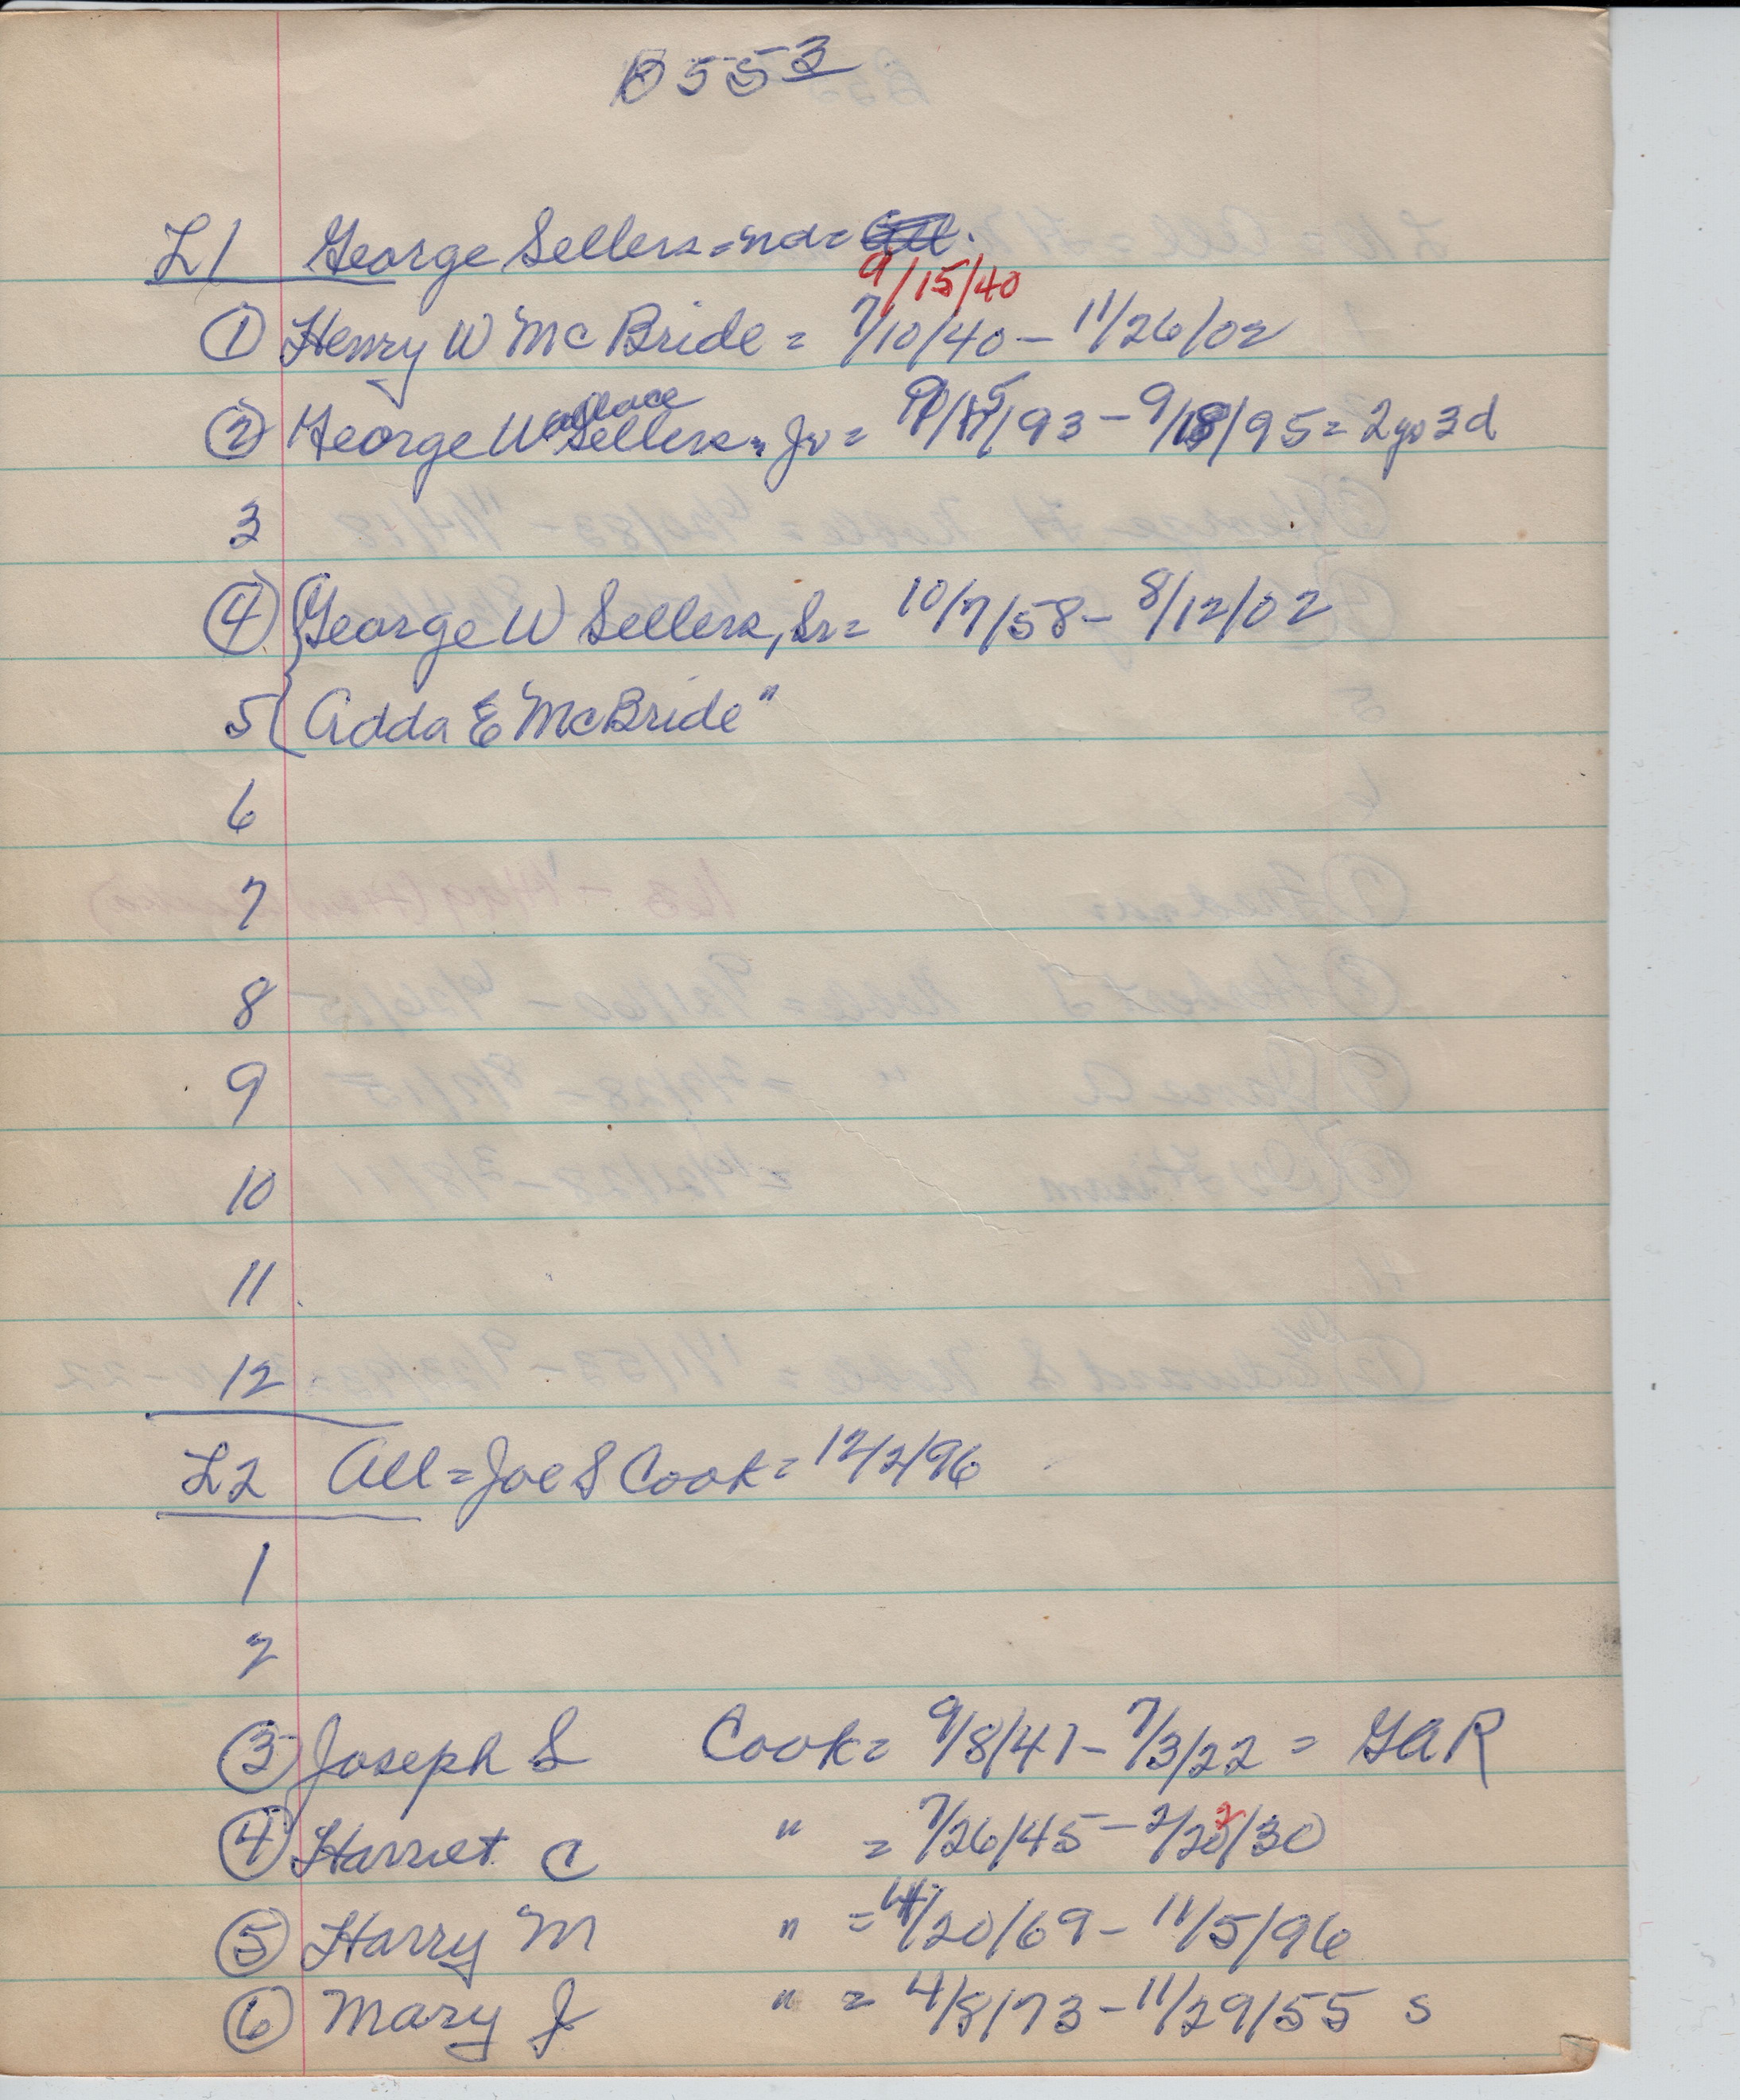 B553
L1 George Sellers = nd =
9/15/40
① Henry W McBride = 7/10/40 - 11/26/02
② George Wallace Sellers, Jr = 9/15/93 - 9/18/95 = 2ys 3d
3
④ George W Sellers, Sr = 10/7/58 - 8/12/02
5 Adda E McBride "
6
7
8
9
10
11
12
L2 All = Joe S Cook = 12/2/96
1
2
③ Joseph S Cook = 9/8/41 - 7/3/22 = GAR
④ Harriet C " = 7/26/45 - 2/22/30
⑤ Harry M " = /20/69 - 11/5/96
⑥ Mary J " = 4/8/73 - 11/29/55 s